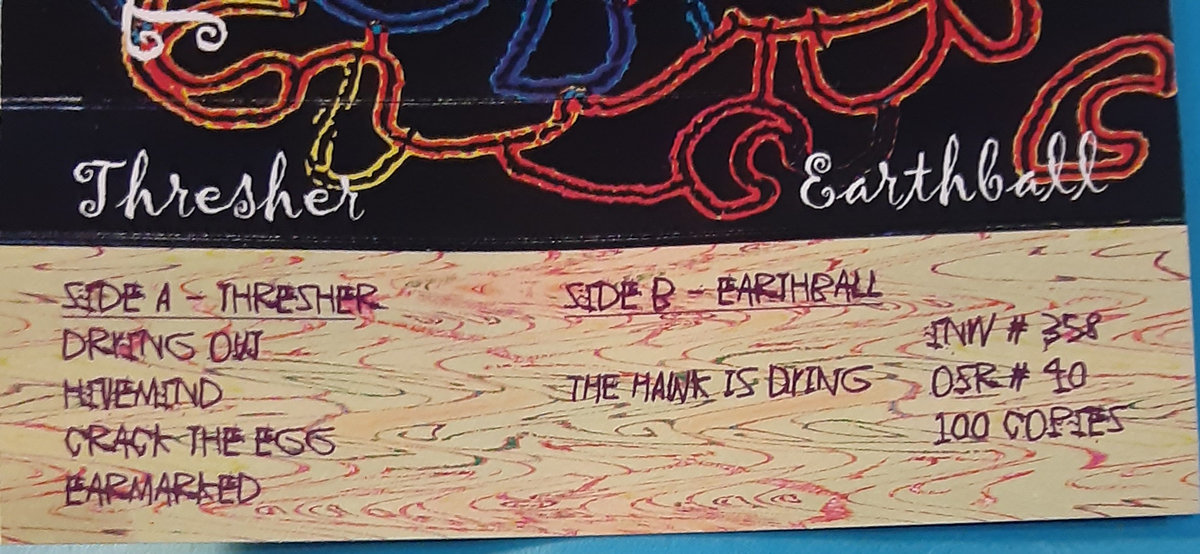 Thresher
Earthball
SIDE A - THRESHER
DRYING OUT
HIVEMIND
CRACK THE EGG
EARMARKED
SIDE B - EARTHBALL
THE HAWK IS DYING
INW # 358
OSR # 40
100 COPIES